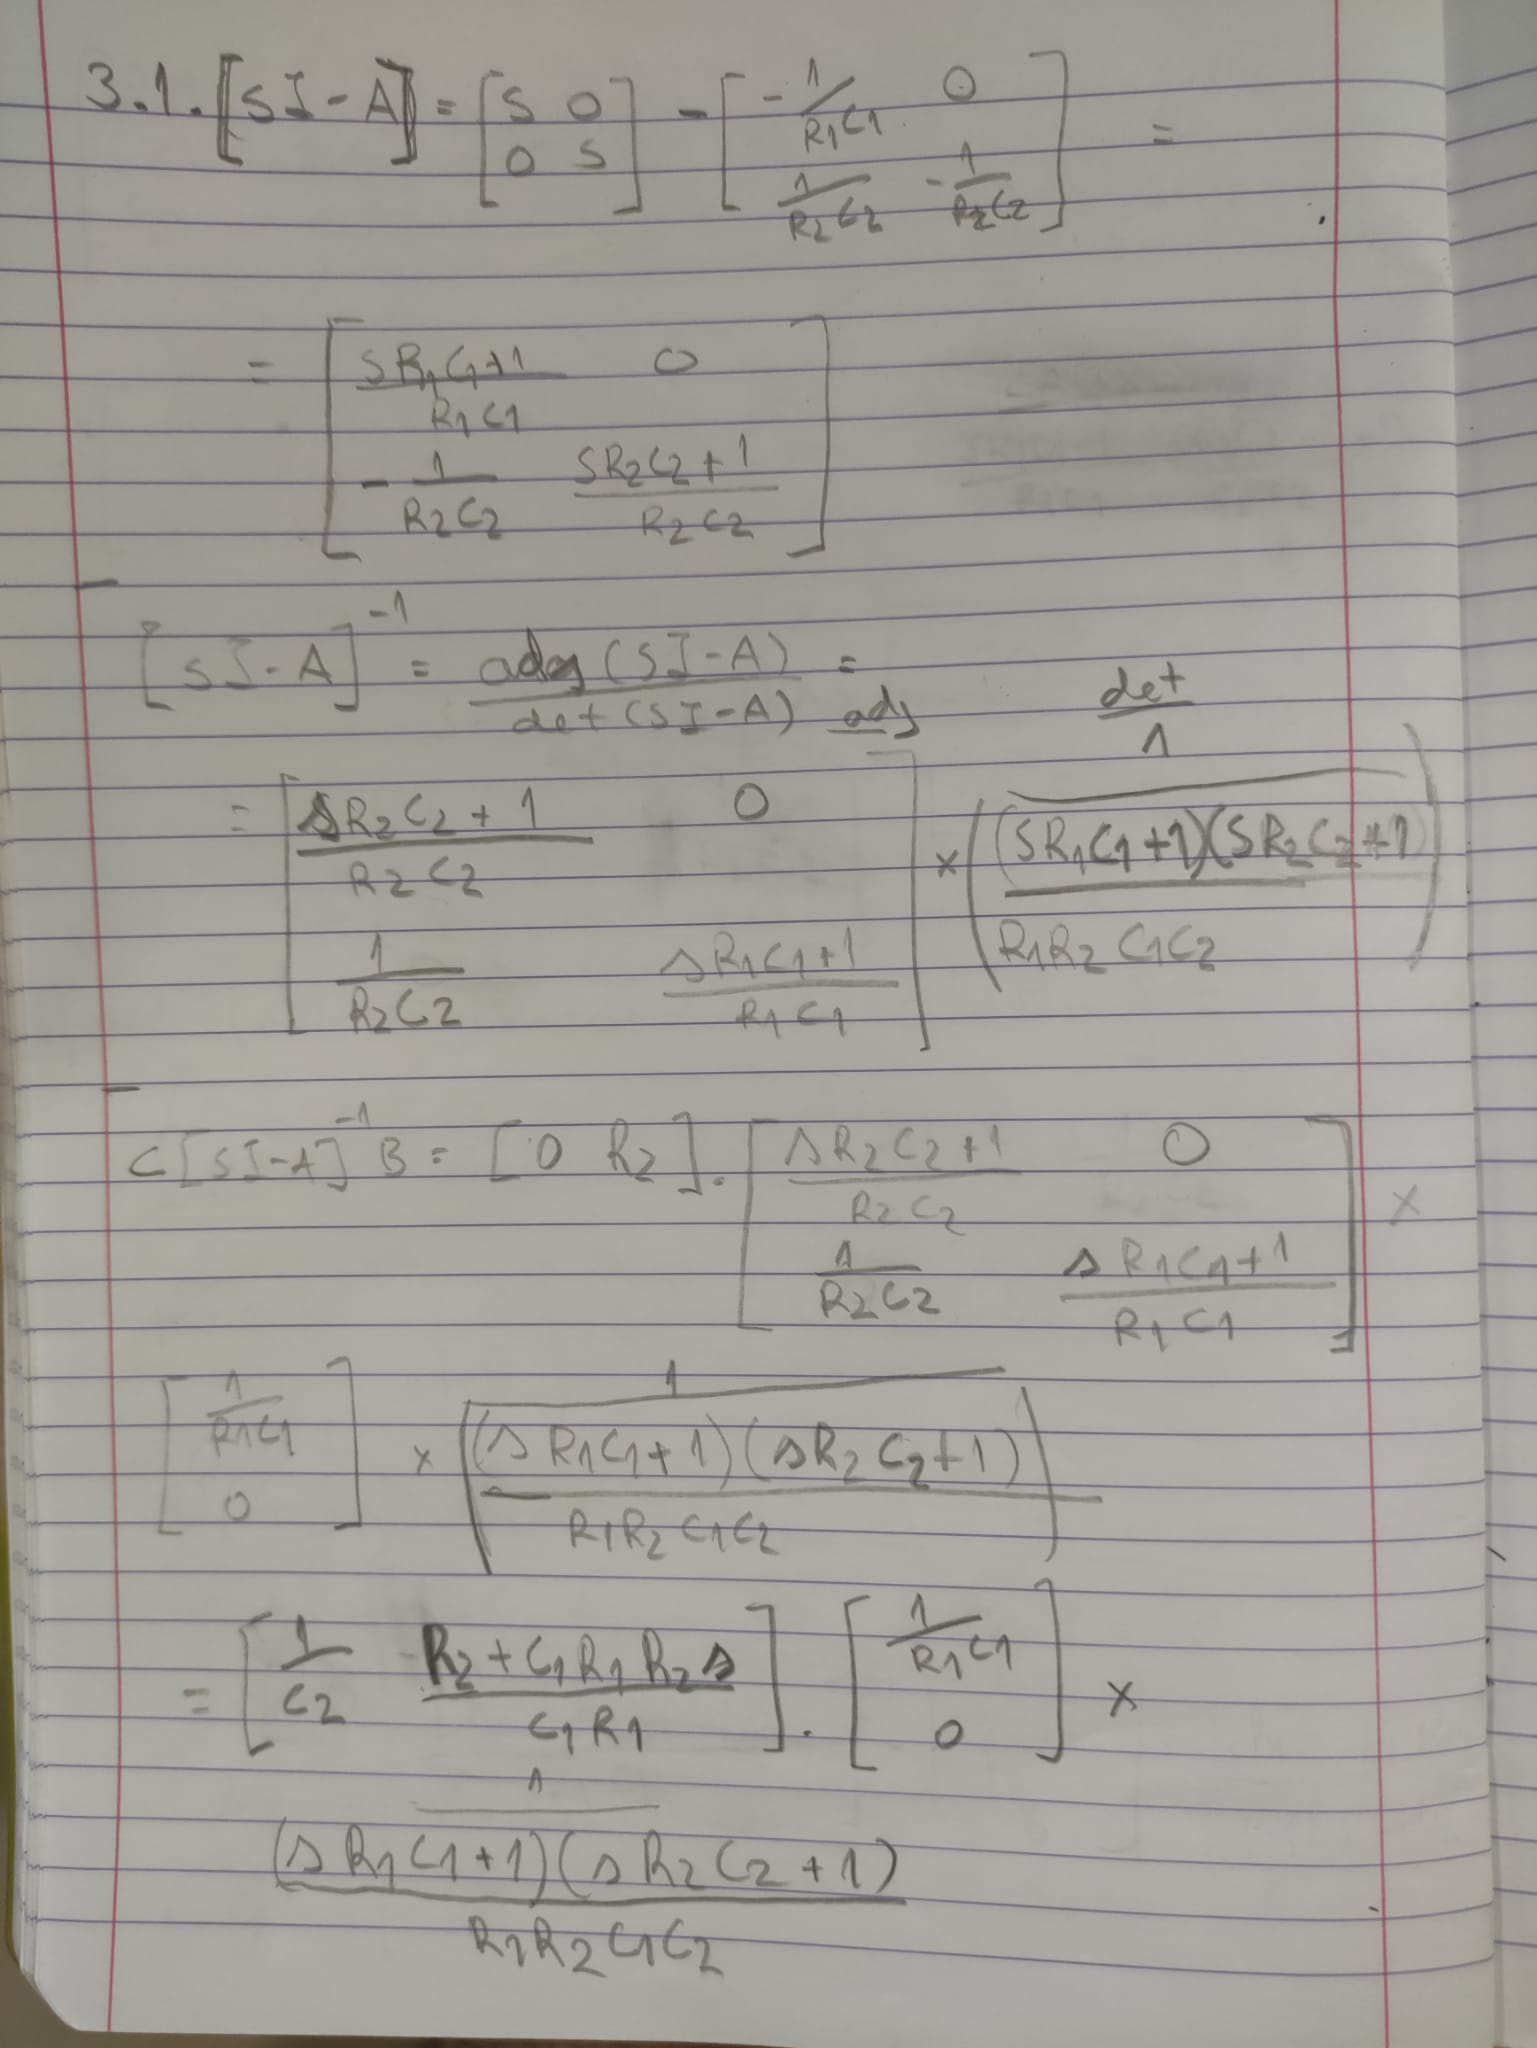 3.1. [SI-A] = [S 0; 0 S] - [-1/R1C1 0; 1/R2C2 -1/R2C2] =
= [(SR1C1+1)/R1C1 0; -1/R2C2 (SR2C2+1)/R2C2]
[SI-A]^-1 = adj(SI-A)/det(SI-A) =
adj det
= [(sR2C2+1)/R2C2 0; 1/R2C2 (sR1C1+1)/R1C1] × (1/((SR1C1+1)(SR2C2+1)/R1R2C1C2))
C[SI-A]^-1 B = [0 R2] . [(sR2C2+1)/R2C2 0; 1/R2C2 (sR1C1+1)/R1C1] ×
[1/R1C1; 0] × (1/((sR1C1+1)(sR2C2+1)/R1R2C1C2))
= [1/C2 (R2+C1R1R2s)/C1R1] . [1/R1C1; 0] ×
1/((sR1C1+1)(sR2C2+1)/R1R2C1C2)